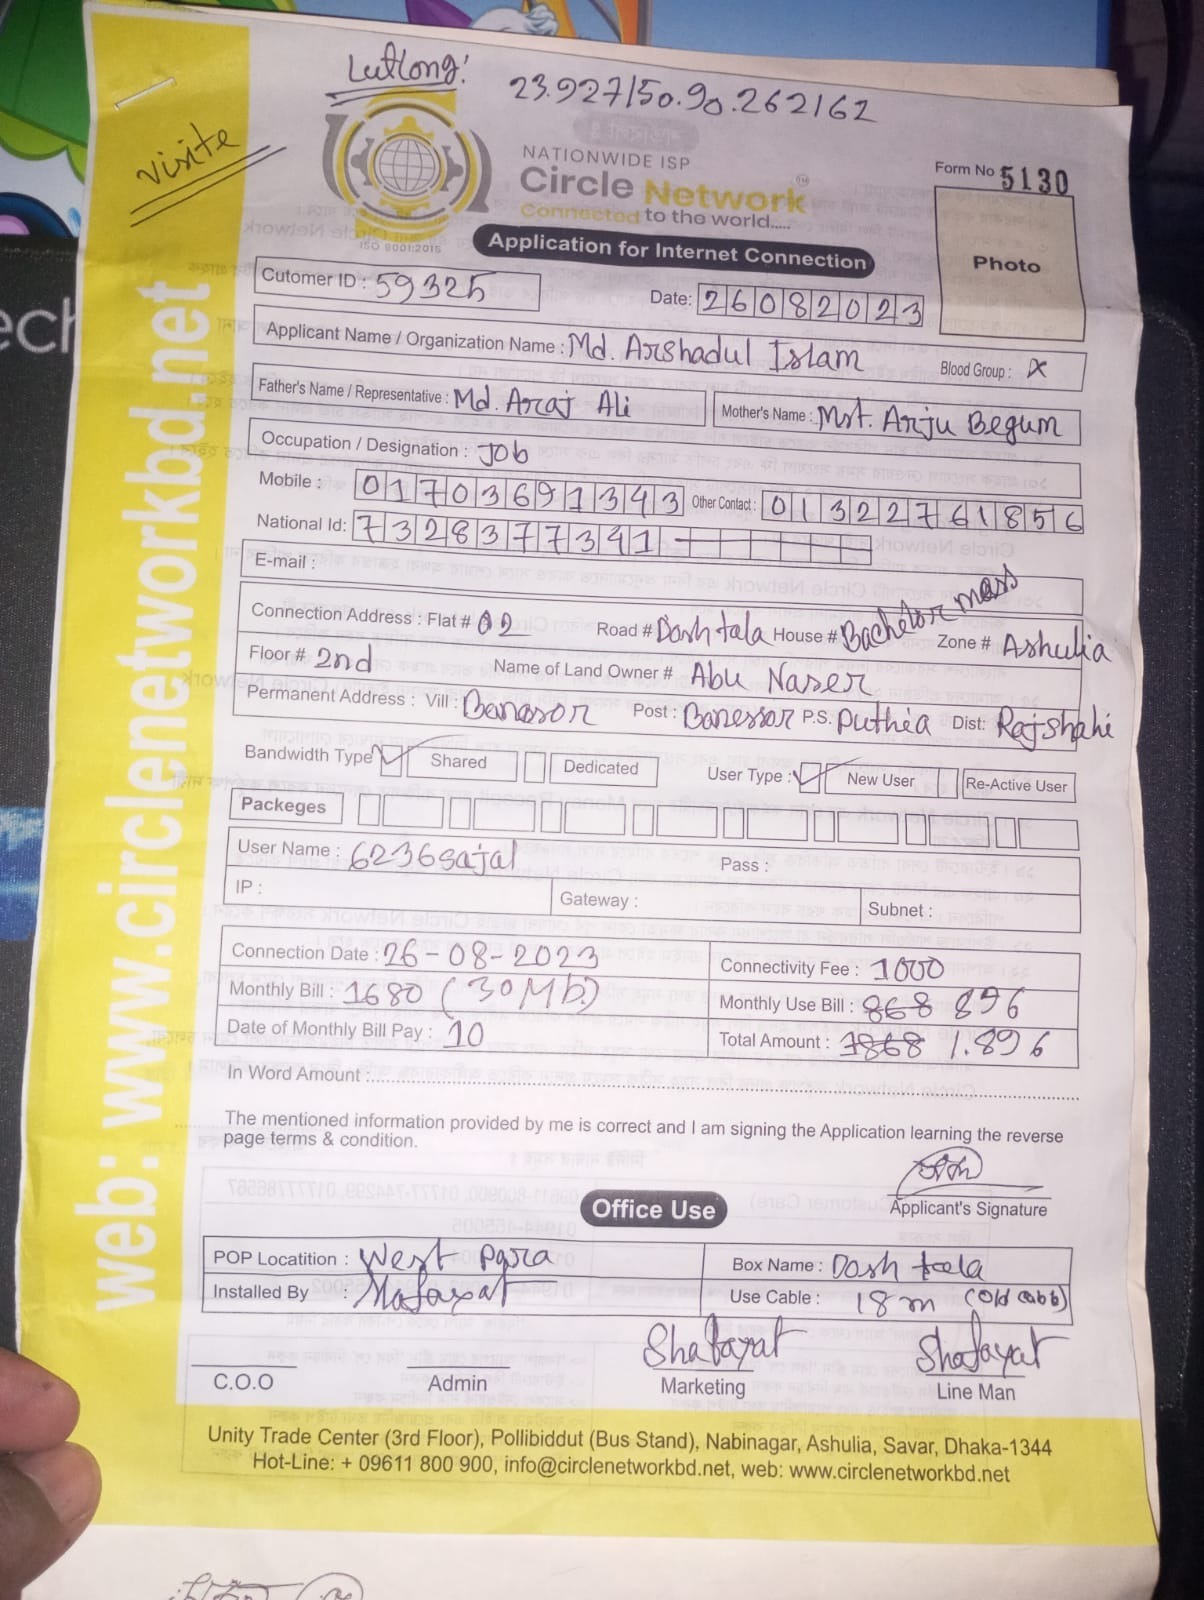 Lutlong: 23.927150.90.262162
visite
NATIONWIDE ISP
Circle Network
Connected to the world.....
ISO 9001:2015
Form No 5130
Photo
Application for Internet Connection
Cutomer ID : 59325
Date: 26082023
Applicant Name / Organization Name : Md. Arshadul Islam
Blood Group : X
Father's Name / Representative : Md. Araj Ali
Mother's Name : Mst. Anju Begum
Occupation / Designation : Job
Mobile : 01703691343 Other Contact : 01322761856
National Id: 7328377341
E-mail :
Connection Address : Flat # 02 Road # Doshtala House # Bachelor mess Zone # Ashulia
Floor # 2nd Name of Land Owner # Abu Naser
Permanent Address : Vill : Banasor Post : Banessor P.S. Puthia Dist: Rajshahi
Bandwidth Type Shared Dedicated User Type : New User Re-Active User
Packeges
User Name : 6236sajal Pass :
IP : Gateway : Subnet :
Connection Date : 26-08-2023 Connectivity Fee : 1000
Monthly Bill : 1680 (30Mb) Monthly Use Bill : 868 896
Date of Monthly Bill Pay : 10 Total Amount : 1868 1.896
In Word Amount :
The mentioned information provided by me is correct and I am signing the Application learning the reverse
page terms & condition.
Applicant's Signature
Office Use
POP Locatition : West para Box Name : Dosh tala
Installed By : Mafayat Use Cable : 18m (Old
Shafayat Shafayat
C.O.O Admin Marketing Line Man
Unity Trade Center (3rd Floor), Pollibiddut (Bus Stand), Nabinagar, Ashulia, Savar, Dhaka-1344
Hot-Line: + 09611 800 900, info@circlenetworkbd.net, web: www.circlenetworkbd.net
web: www.circlenetworkbd.net